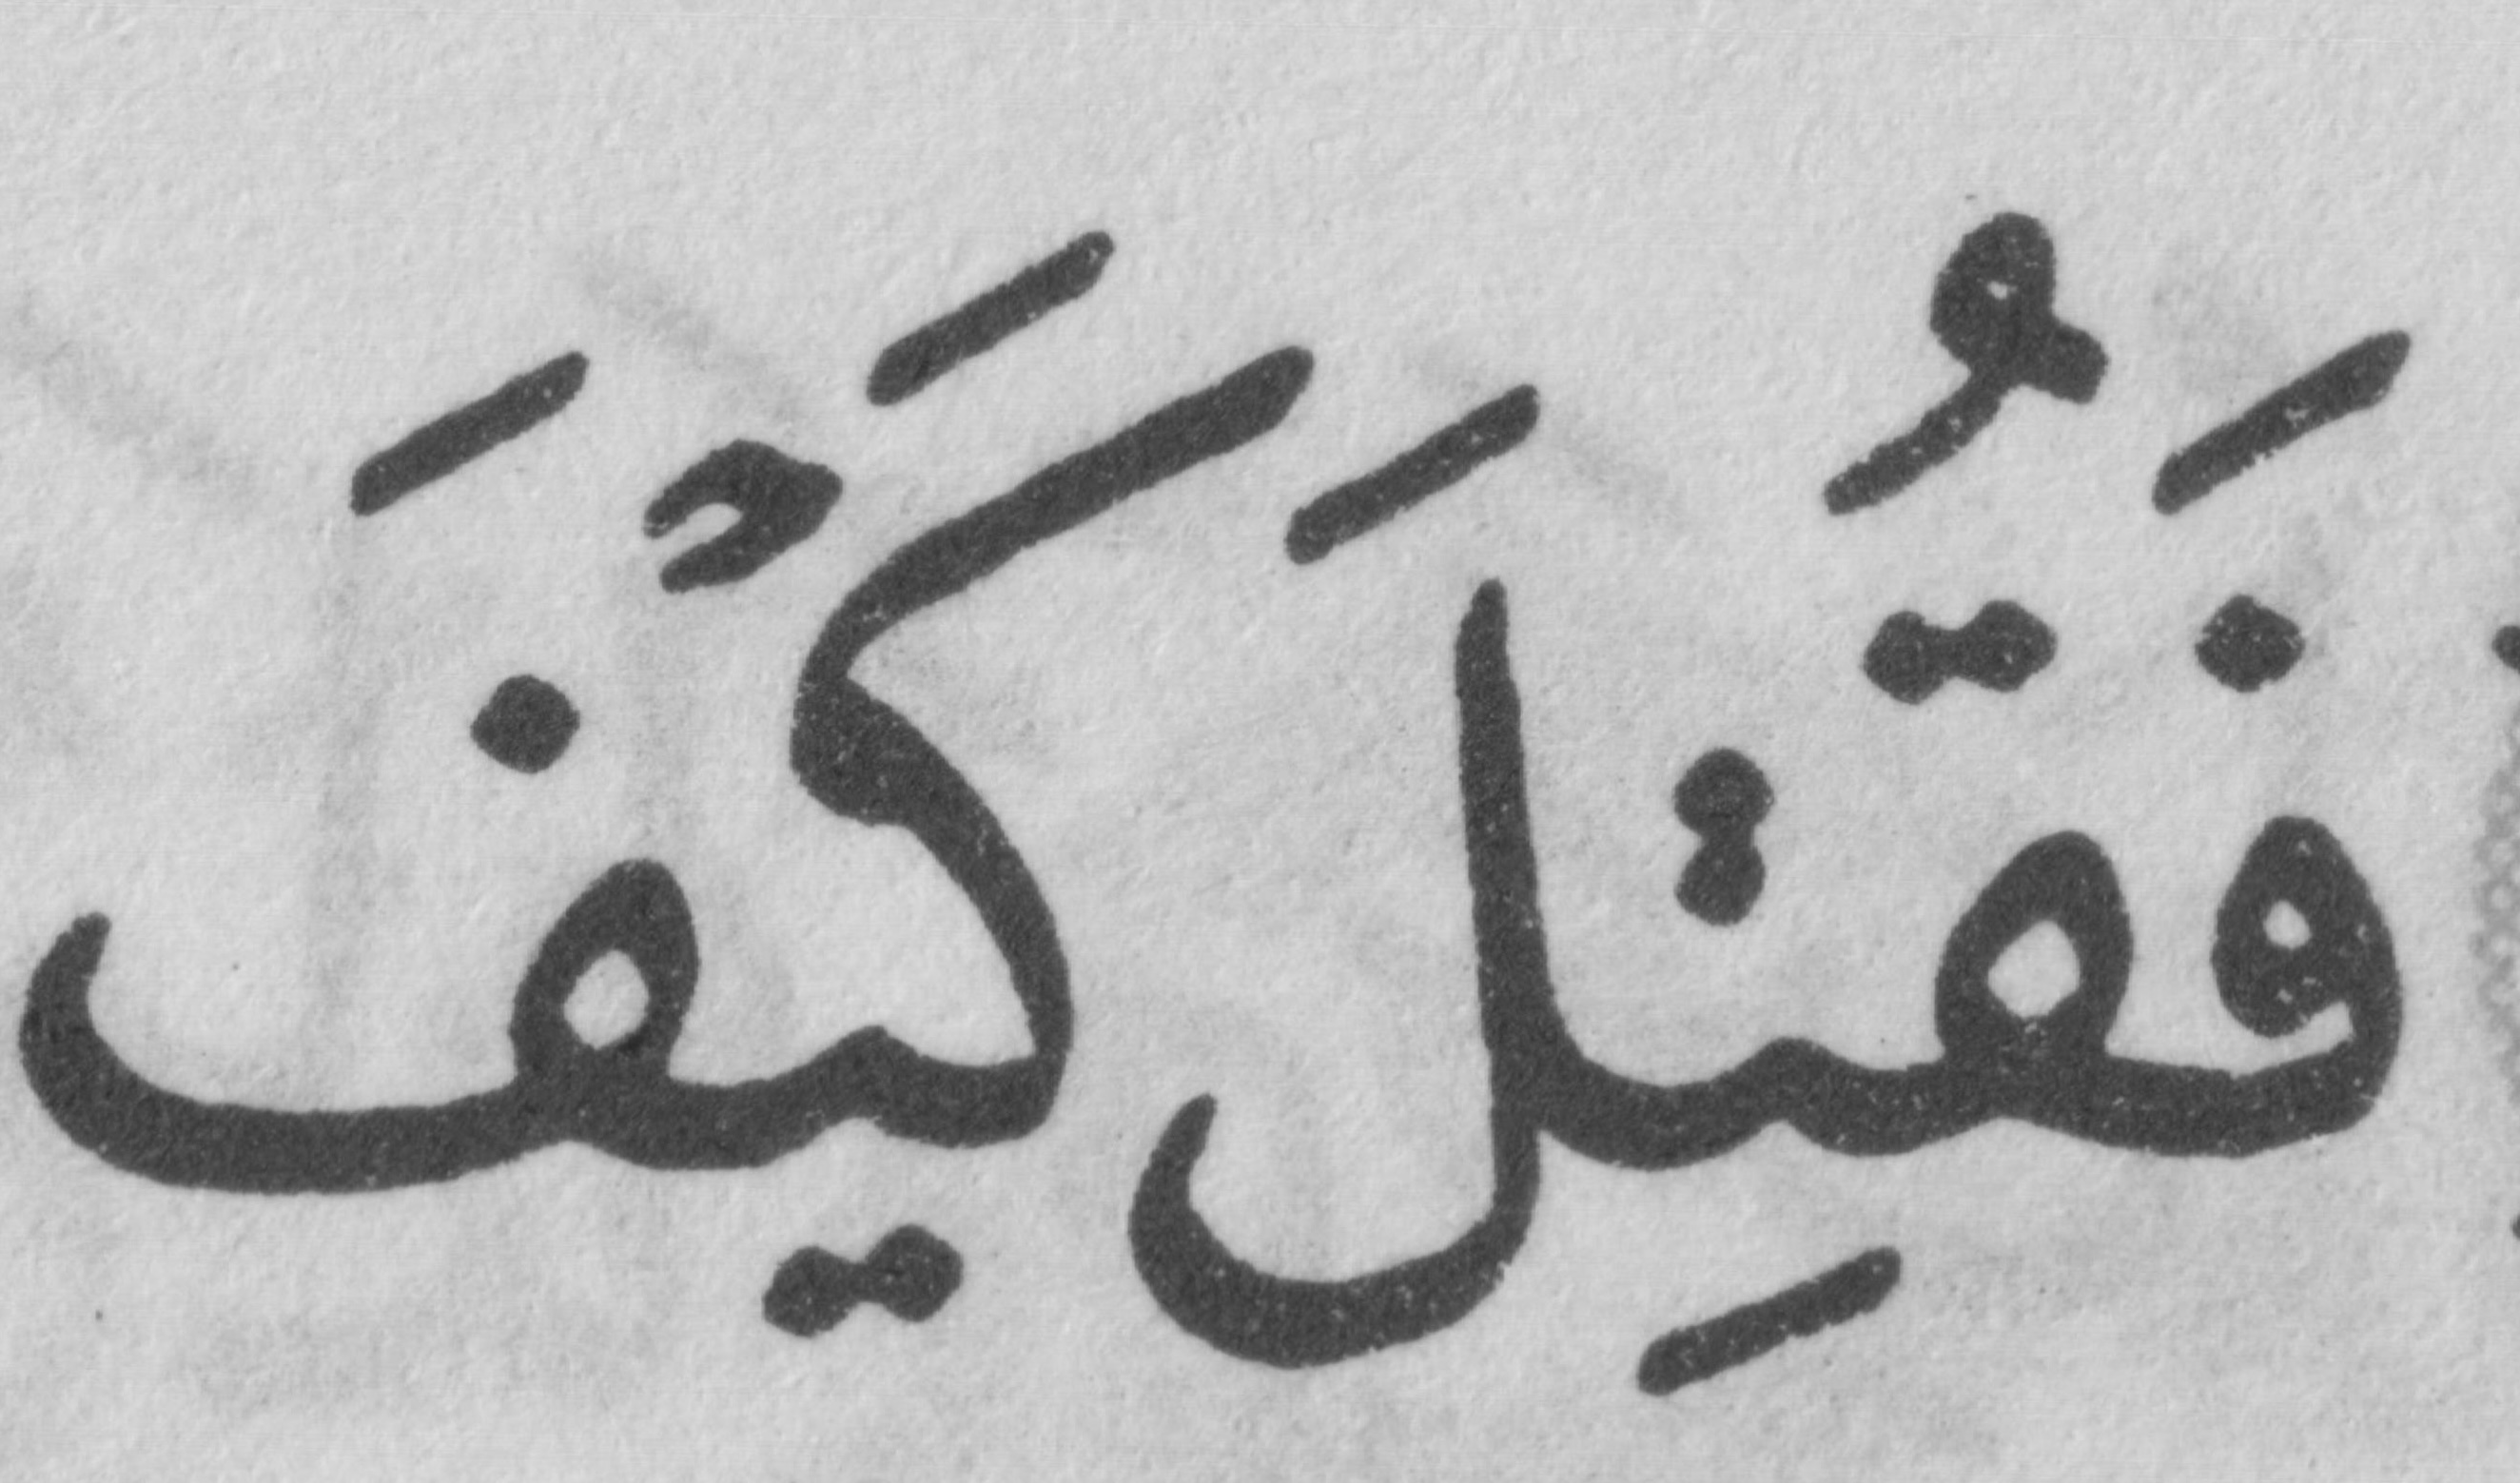 فَقُتِلَ كَيْفَ